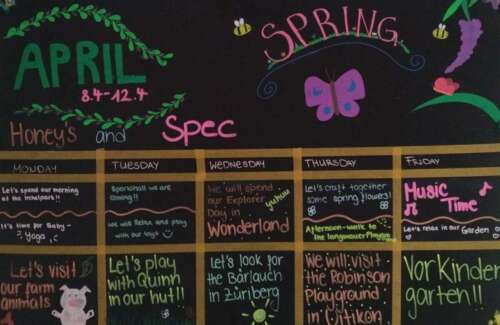 SPRING
APRIL
8.4-12.4
Honey's and Spec
MONDAY
TUESDAY
WEDNESDAY
THURSDAY
FRIDAY
Let's spend our morning
at the
It's time for Baby-
Yoga
we are
coming!!
We will Relax and play
with our toys
We will spend
our Explorer
Day in
yuhuu
Wonderland
Let's craft together
some spring flowers!
Afternoon-walk to
the
Music
Time
Let's relax in our Garden
Let's visit
our farm
animals
Let's play
with Quinn
in our hut!!
Let's look for
the Bärlauch
in Züriberg
We will visit
the Robinson
Playground
in Witikon
Vorkinder
garten!!